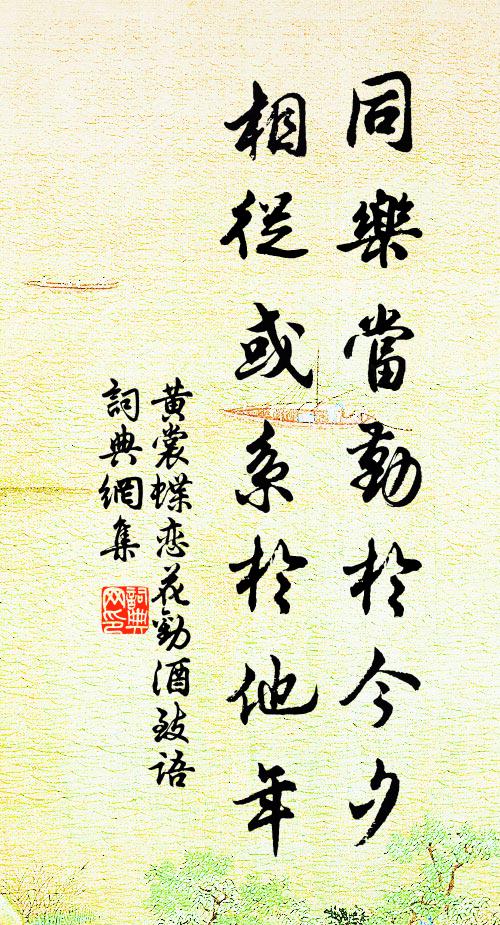 同樂當勤於今夕
相從或系於他年
黃裳蝶恋花勸酒致語
詞典網集
詞典网印